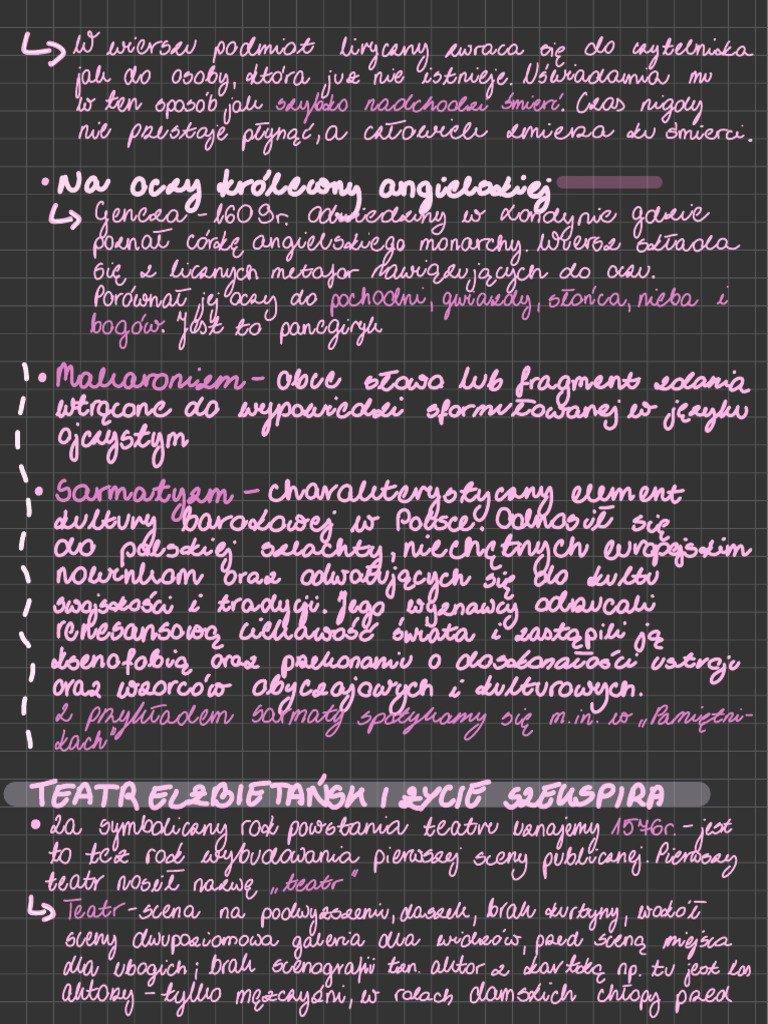 ↳ W wierszu podmiot liryczny zwraca się do czytelnika
jak do osoby, która już nie istnieje. Uświadamia mu
w ten sposób jak szybko nadchodzi śmierć. Czas nigdy
nie przestaje płynąć, a człowiek zmierza ku śmierci.
• Na oczy królewny angielskiej
↳ Geneza - 1609r. odwiedziny w Londynie gdzie
poznał córkę angielskiego monarchy. Wiersz składa
się z licznych metafor nawiązujących do oczu.
Porównał jej oczy do pochodni, gwiazdy, słońca, nieba i
bogów. Jest to panegiryk
• Makaronizm - obce słowo lub fragment zdania
wtrącone do wypowiedzi sformułowanej w języku
ojczystym
• Sarmatyzm - charakterystyczny element
kultury barokowej w Polsce. Odnosił się
do polskiej szlachty, niechętnych europejskim
nowinkom oraz odwołujących się do kultu
swojskości i tradycji. Jego wyznawcy odrzucali
renesansową ciekawość świata i zastąpili ją
ksenofobią oraz przekonaniu o doskonałości ustroju
oraz wzorców obyczajowych i kulturowych.
Z przykładem sarmaty spotykamy się m.in. w „Pamiętni-
kach"
TEATR ELŻBIETAŃSKI I ŻYCIE SZEKSPIRA
• Za symboliczny rok powstania teatru uznajemy 1576r. - jest
to też rok wybudowania pierwszej sceny publicznej. Pierwszy
teatr nosił nazwę „teatr"
↳ Teatr - scena na podwyższeniu, daszek, brak kurtyny, wokół
sceny dwupoziomowa galeria dla widzów, przed sceną miejsca
dla ubogich; brak scenografii tzn. aktor z kartką np. tu jest las
aktorzy - tylko mężczyźni, w rolach damskich chłopy przed